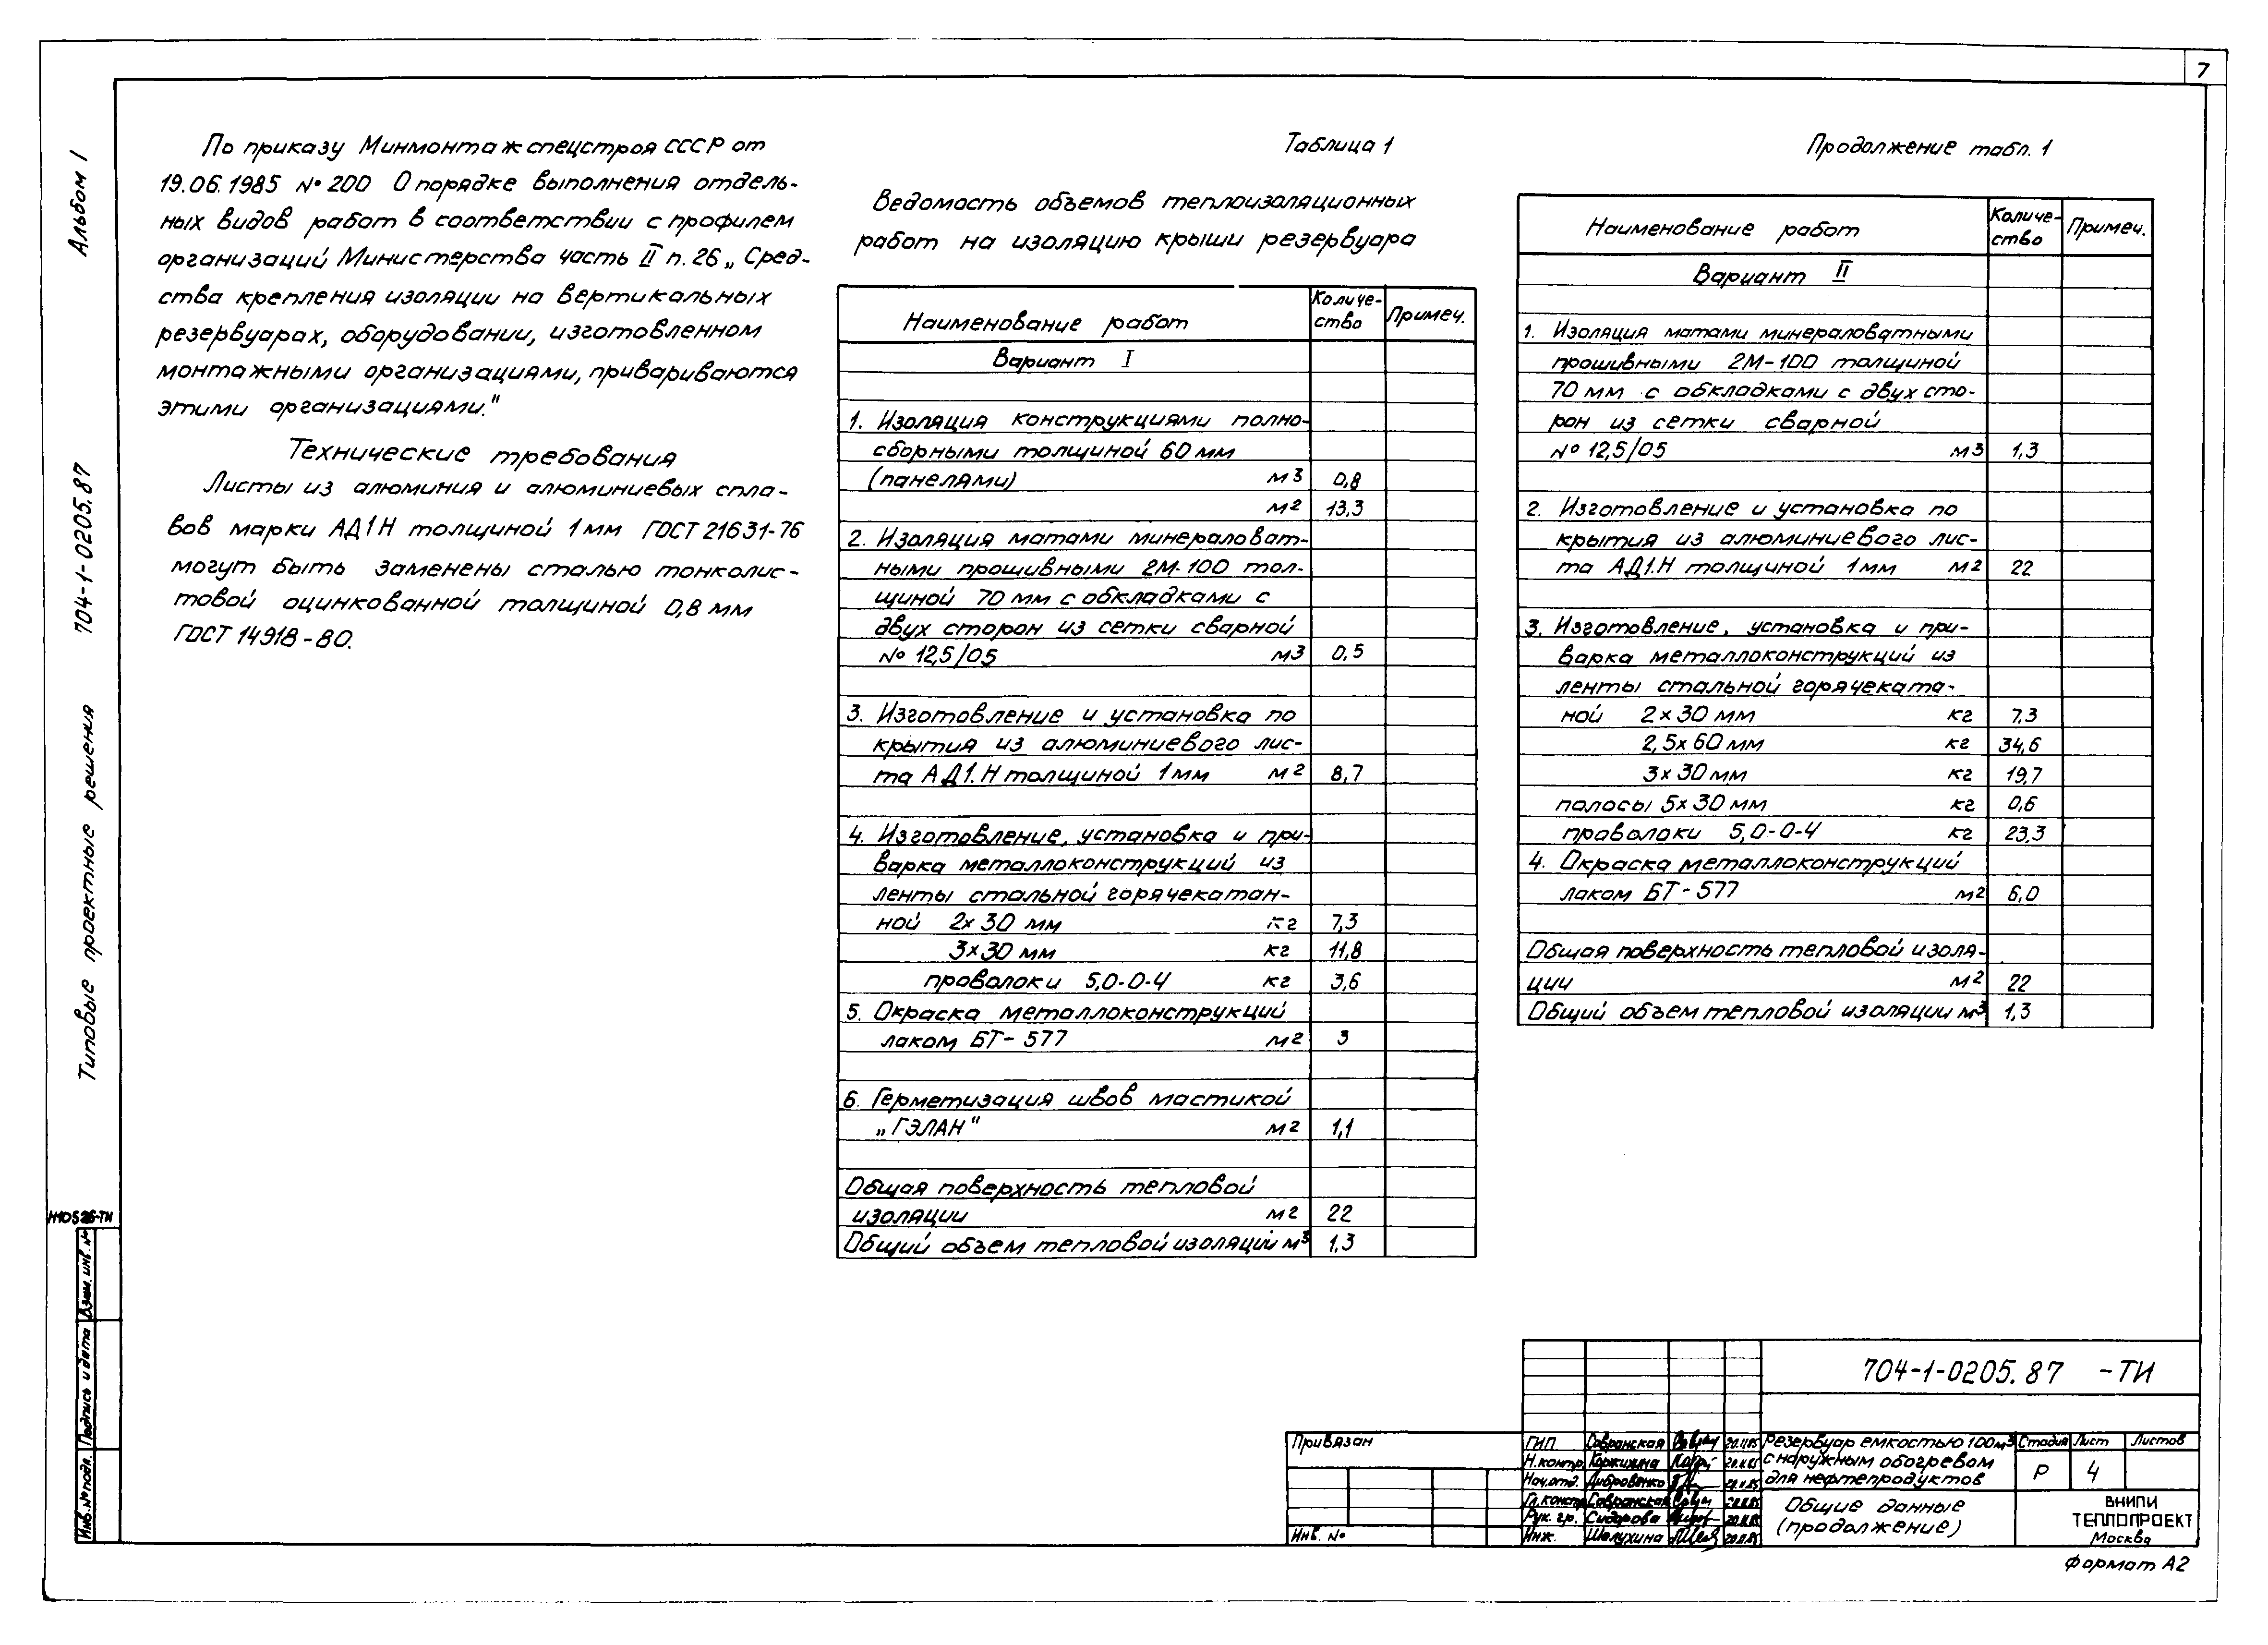 7
Альбом I
704-1-0205.87
Типовые проектные решения
По приказу Минмонтажспецстроя СССР от
19.06.1985 № 200 О порядке выполнения отдель-
ных видов работ в соответствии с профилем
организаций Министерства часть II п. 26 „Сред-
ства крепления изоляции на вертикальных
резервуарах, оборудовании, изготовленном
монтажными организациями, привариваются
этими организациями."
Технические требования
Листы из алюминия и алюминиевых спла-
вов марки АД1Н толщиной 1 мм ГОСТ 21631-76
могут быть заменены сталью тонколис-
товой оцинкованной толщиной 0,8 мм
ГОСТ 14918-80.
Таблица 1
Ведомость объемов теплоизоляционных
работ на изоляцию крыши резервуара
Наименование работ Количе-ство Примеч.
Вариант I
1. Изоляция конструкциями полно-
сборными толщиной 60 мм
(панелями) м3 0,8
м2 13,3
2. Изоляция матами минераловат-
ными прошивными 2М-100 тол-
щиной 70 мм с обкладками с
двух сторон из сетки сварной
№ 12,5/05 м3 0,5
3. Изготовление и установка по
крытия из алюминиевого лис-
та АД1.Н толщиной 1 мм м2 8,7
4. Изготовление, установка и при-
варка металлоконструкций из
ленты стальной горячекатан-
ной 2х30 мм кг 7,3
3х30 мм кг 11,8
проволоки 5,0-0-4 кг 3,6
5. Окраска металлоконструкций
лаком БТ-577 м2 3
6. Герметизация швов мастикой
„ГЭЛАН“ м2 1,1
Общая поверхность тепловой
изоляции м2 22
Общий объем тепловой изоляции м3 1,3
Продолжение табл. 1
Наименование работ Количе-ство Примеч.
Вариант II
1. Изоляция матами минераловатными
прошивными 2М-100 толщиной
70 мм с обкладками с двух сто-
рон из сетки сварной
№ 12,5/05 м3 1,3
2. Изготовление и установка по
крытия из алюминиевого лис-
та АД1.Н толщиной 1 мм м2 22
3. Изготовление, установка и при-
варка металлоконструкций из
ленты стальной горячеката-
ной 2х30 мм кг 7,3
2,5х60 мм кг 34,6
3х30 мм кг 19,7
полосы 5х30 мм кг 0,6
проволоки 5,0-0-4 кг 23,3
4. Окраска металлоконструкций
лаком БТ-577 м2 6,0
Общая поверхность тепловой изоля-
ции м2 22
Общий объем тепловой изоляции м3 1,3
Взам. инв. №
Подпись и дата
Инв. № подл.
704-1-0205.87 -ТИ
Привязан
Инв. №
ГИП Савранская 20.11.85
Н.контр. Коржихина 20.11.85
Нач.отд. 20.11.85
Гл.констр. Савранская 20.11.85
Рук. гр. Сидорова 20.11.85
Инж. Шелухина 20.11.85
Резервуар емкостью 100м3
с наружным обогревом
для нефтепродуктов
Стадия Лист Листов
Р 4
Общие данные
(продолжение)
ВНИПИ
ТЕПЛОПРОЕКТ
Москва
Формат А2